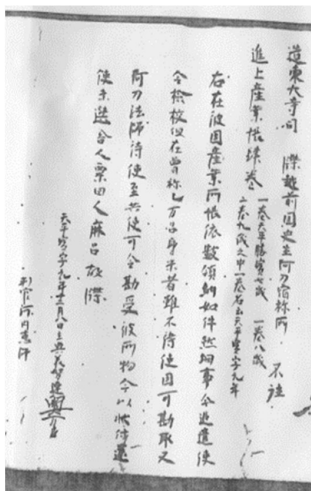 造東大寺司 牒越前国史生阿刀宿祢所 不注
進上産業帳肆巻 一巻天平勝寶七歳 一巻八歳
二巻九歳之中一巻 天平寶字元年
右在彼国産業所帳依数領納如件然細事今追遣使
令検校但在曽祢乙万呂身未者雖不待使国可勘取又
阿刀法師待使至共使可令勘受彼所物今以状付還
使未選舎人粟田人麻呂故牒
天平寶字元年十二月八日主典
判官河内